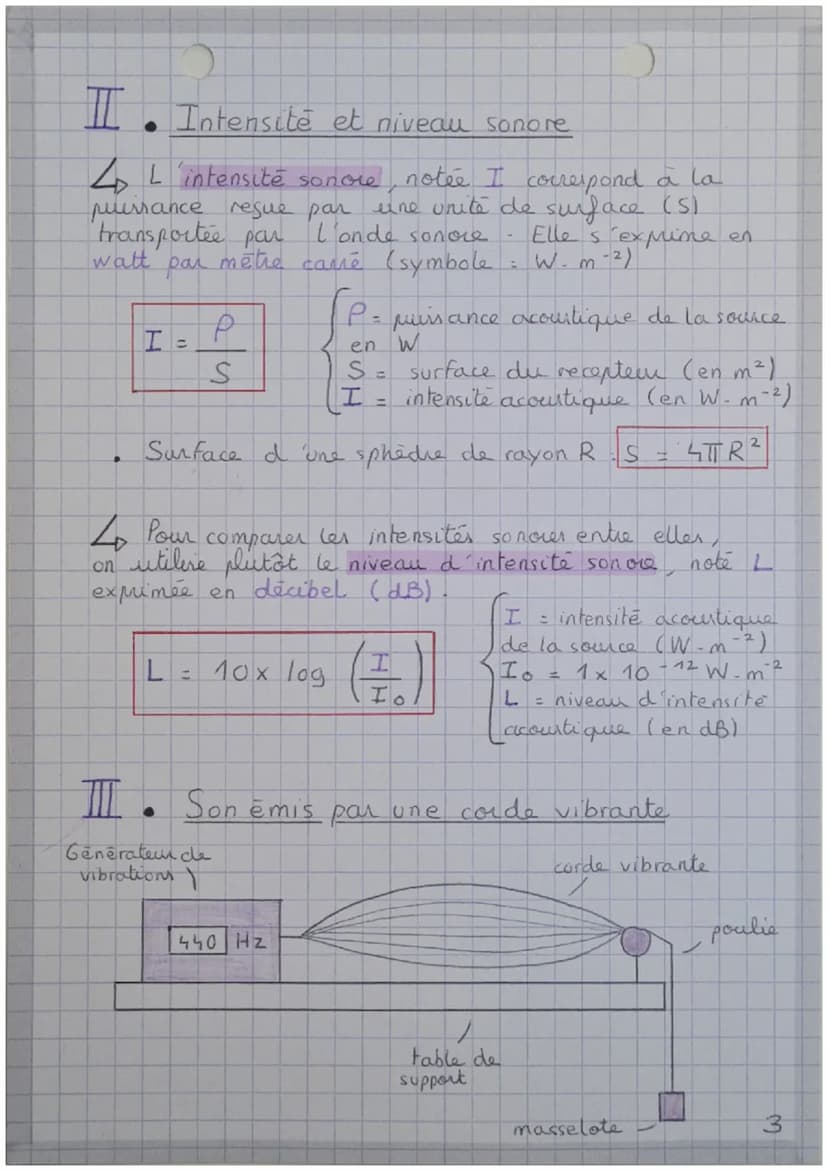 II. Intensité et niveau sonore
↳ L'intensité sonore, notée I correspond à la
puissance reçue par une unité de surface (S)
transportée par l'onde sonore. Elle s'exprime en
watt par mètre carré (symbole : W.m⁻²)
I = P/S
P = puissance acoustique de la source
en W
S = surface du recepteur (en m²)
I = intensité acoustique (en W.m⁻²)
• Surface d'une sphèdre de rayon R : S = 4πR²
↳ Pour comparer les intensités sonores entre elles,
on utilise plutôt le niveau d'intensité sonore, noté L
exprimée en décibel (dB).
L = 10 x log (I/I₀)
I = intensité acoustique
de la source (W.m⁻²)
I₀ = 1x 10⁻¹² W.m⁻²
L = niveau d'intensité
acoustique (en dB)
III. Son émis par une corde vibrante
Générateur de
vibrations
corde vibrante
440 Hz
poulie
table de
support
masselote
3